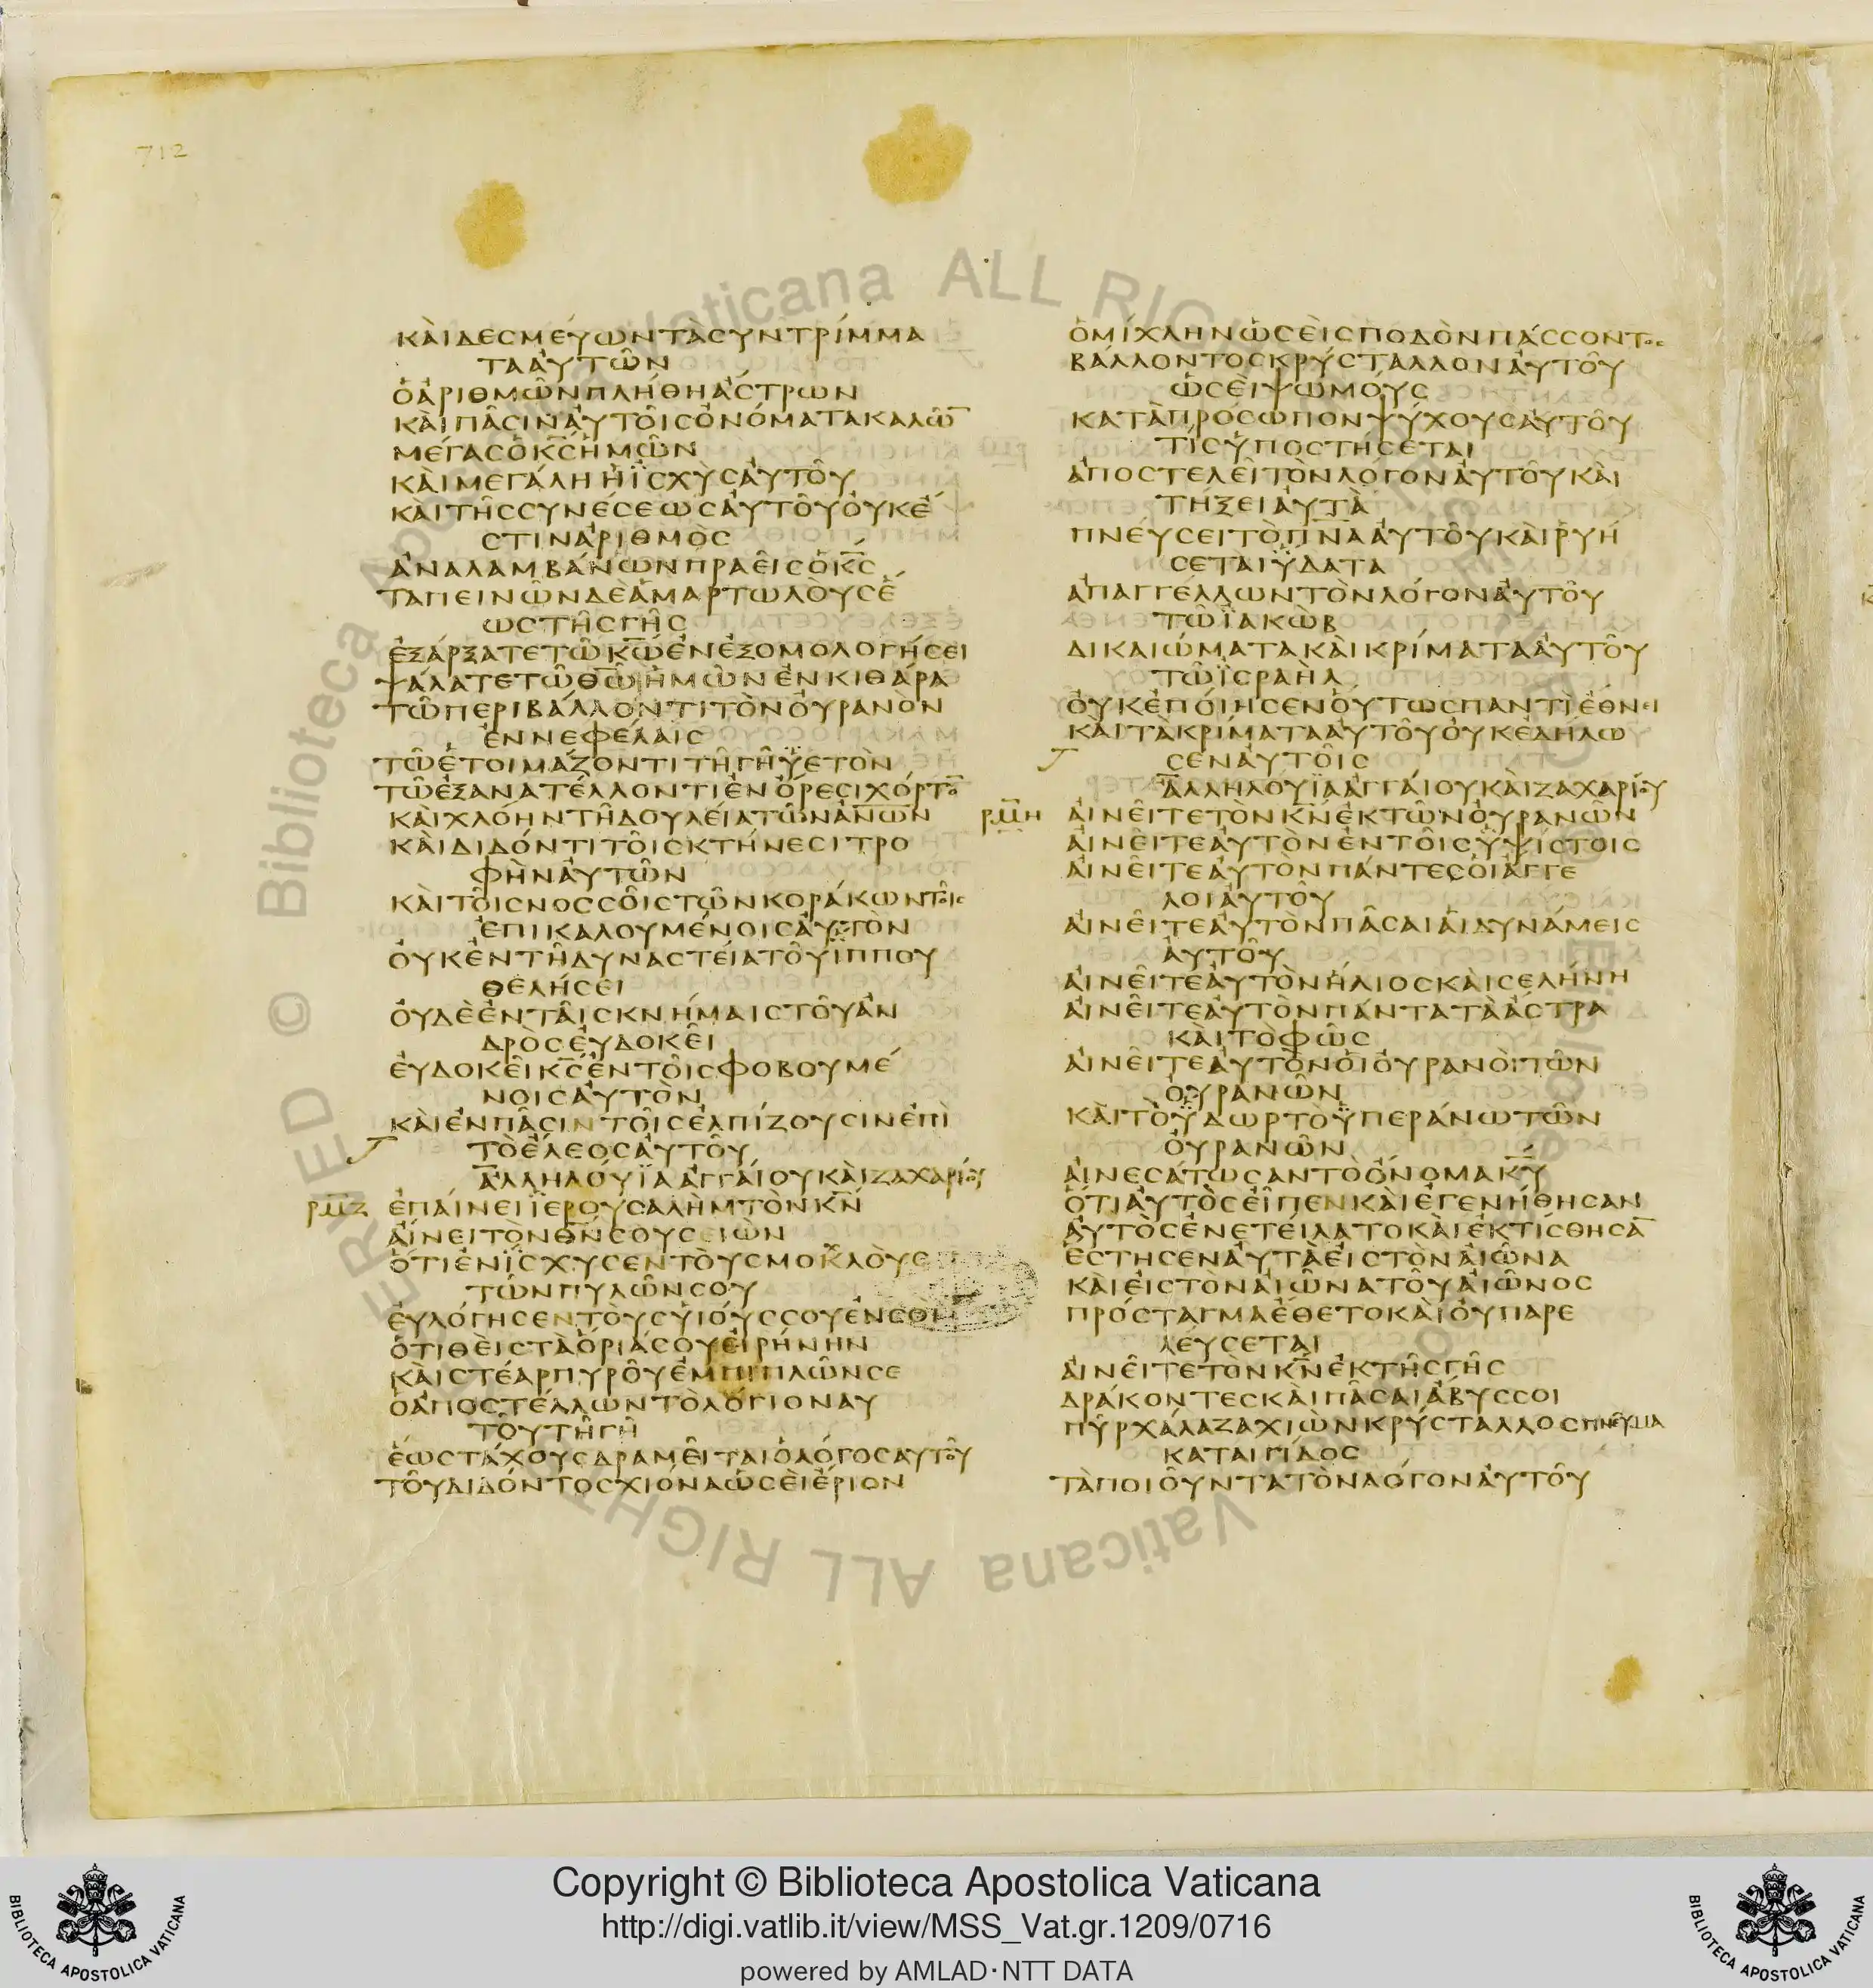 712
ΚΑΙΔΕСΜΕΥΩΝΤΑСΥΝΤΡΙΜΜΑ
ΤΑΑΥΤΩΝ
ΟΑΡΙΘΜΩΝΠΛΗΘΗΑСΤΡΩΝ
ΚΑΙΠΑСΙΝΑΥΤΟΙСΟΝΟΜΑΤΑΚΑΛΩ̅
ΜΕΓΑСΟΚ̅С̅ΗΜΩΝ
ΚΑΙΜΕΓΑΛΗΗΪСΧΥСΑΥΤΟΥ
ΚΑΙΤΗССΥΝΕСΕΩСΑΥΤΟΥΟΥΚΕ
СΤΙΝΑΡΙΘΜΟС
ΑΝΑΛΑΜΒΑΝΩΝΠΡΑΕΙСΟΚ̅С̅
ΤΑΠΕΙΝΩΝΔΕΑΜΑΡΤΩΛΟΥСΕ
ΩСΤΗСΓΗС
ΕΞΑΡΞΑΤΕΤΩΚ̅Ω̅ΕΝΕΞΟΜΟΛΟΓΗСΕΙ
ΨΑΛΑΤΕΤΩΘ̅Ω̅ΗΜΩΝΕΝΚΙΘΑΡΑ
ΤΩΠΕΡΙΒΑΛΛΟΝΤΙΤΟΝΟΥΡΑΝΟΝ
ΕΝΝΕΦΕΛΑΙС
ΤΩΕΤΟΙΜΑΖΟΝΤΙΤΗΓΗΫΕΤΟΝ
ΤΩΕΞΑΝΑΤΕΛΛΟΝΤΙΕΝΟΡΕСΙΧΟΡΤΟ̅
ΚΑΙΧΛΟΗΝΤΗΔΟΥΛΕΙΑΤΩΝΑ̅Ν̅Ω̅Ν̅
ΚΑΙΔΙΔΟΝΤΙΤΟΙСΚΤΗΝΕСΙΤΡΟ
ΦΗΝΑΥΤΩΝ
ΚΑΙΤΟΙСΝΟССΟΙСΤΩΝΚΟΡΑΚΩΝΤΟΙС
ΕΠΙΚΑΛΟΥΜΕΝΟΙСΑΥΤΟΝ
ΟΥΚΕΝΤΗΔΥΝΑСΤΕΙΑΤΟΥΪΠΠΟΥ
ΘΕΛΗСΕΙ
ΟΥΔΕΕΝΤΑΙСΚΝΗΜΑΙСΤΟΥΑΝ
ΔΡΟСΕΥΔΟΚΕΙ
ΕΥΔΟΚΕΙΚ̅С̅ΕΝΤΟΙСΦΟΒΟΥΜΕ
ΝΟΙСΑΥΤΟΝ
ΚΑΙΕΝΠΑСΙΝΤΟΙСΕΛΠΙΖΟΥСΙΝΕΠΙ
ΤΟΕΛΕΟСΑΥΤΟΥ
ΑΛΛΗΛΟΥΪΑΑΓΓΑΙΟΥΚΑΙΖΑΧΑΡΙΟΥ
ΡΜΖ ΕΠΑΙΝΕΙΪΕΡΟΥСΑΛΗΜΤΟΝΚ̅Ν̅
ΑΙΝΕΙΤΟΝΘ̅Ν̅СΟΥСΕΙΩΝ
ΟΤΙΕΝΪСΧΥСΕΝΤΟΥСΜΟΚΛΟΥС
ΤΩΝΠΥΛΩΝСΟΥ
ΕΥΛΟΓΗСΕΝΤΟΥСΥΙΟΥССΟΥΕΝСΟΙ
ΟΤΙΘΕΙСΤΑΟΡΙΑСΟΥΕΙΡΗΝΗΝ
ΚΑΙСΤΕΑΡΠΥΡΟΥΕΜΠΙΠΛΩΝСΕ
ΟΑΠΟСΤΕΛΛΩΝΤΟΛΟΓΙΟΝΑΥ
ΤΟΥΤΗΓΗ
ΕΩСΤΑΧΟΥСΔΡΑΜΕΙΤΑΙΟΛΟΓΟСΑΥΤΟΥ
ΤΟΥΔΙΔΟΝΤΟСΧΙΟΝΑΩСΕΙΕΡΙΟΝ
ΟΜΙΧΛΗΝΩСΕΙСΠΟΔΟΝΠΑССΟΝΤΟС
ΒΑΛΛΟΝΤΟСΚΡΥСΤΑΛΛΟΝΑΥΤΟΥ
ΩСΕΙΨΩΜΟΥС
ΚΑΤΑΠΡΟСΩΠΟΝΨΥΧΟΥСΑΥΤΟΥ
ΤΙСΫΠΟСΤΗСΕΤΑΙ
ΑΠΟСΤΕΛΕΙΤΟΝΛΟΓΟΝΑΥΤΟΥΚΑΙ
ΤΗΞΕΙΑΥΤΑ
ΠΝΕΥСΕΙΤΟΠ̅Ν̅Α̅ΑΥΤΟΥΚΑΙΡΥΗ
СΕΤΑΙΫΔΑΤΑ
ΑΠΑΓΓΕΛΛΩΝΤΟΝΛΟΓΟΝΑΥΤΟΥ
ΤΩΪΑΚΩΒ
ΔΙΚΑΙΩΜΑΤΑΚΑΙΚΡΙΜΑΤΑΑΥΤΟΥ
ΤΩΪСΡΑΗΛ
ΟΥΚΕΠΟΙΗСΕΝΟΥΤΩСΠΑΝΤΙΕΘΝΕΙ
ΚΑΙΤΑΚΡΙΜΑΤΑΑΥΤΟΥΟΥΚΕΔΗΛΩ
СΕΝΑΥΤΟΙС
ΑΛΛΗΛΟΥΪΑΑΓΓΑΙΟΥΚΑΙΖΑΧΑΡΙΟΥ
ΡΜΗ ΑΙΝΕΙΤΕΤΟΝΚ̅Ν̅ΕΚΤΩΝΟΥΡΑΝΩΝ
ΑΙΝΕΙΤΕΑΥΤΟΝΕΝΤΟΙСΫΨΙСΤΟΙС
ΑΙΝΕΙΤΕΑΥΤΟΝΠΑΝΤΕСΟΙΑΓΓΕ
ΛΟΙΑΥΤΟΥ
ΑΙΝΕΙΤΕΑΥΤΟΝΠΑСΑΙΑΙΔΥΝΑΜΕΙС
ΑΥΤΟΥ
ΑΙΝΕΙΤΕΑΥΤΟΝΗΛΙΟСΚΑΙСΕΛΗΝΗ
ΑΙΝΕΙΤΕΑΥΤΟΝΠΑΝΤΑΤΑΑСΤΡΑ
ΚΑΙΤΟΦΩС
ΑΙΝΕΙΤΕΑΥΤΟΝΟΙΟΥΡΑΝΟΙΤΩΝ
ΟΥΡΑΝΩΝ
ΚΑΙΤΟΫΔΩΡΤΟΫΠΕΡΑΝΩΤΩΝ
ΟΥΡΑΝΩΝ
ΑΙΝΕСΑΤΩСΑΝΤΟΟΝΟΜΑΚ̅Υ̅
ΟΤΙΑΥΤΟСΕΙΠΕΝΚΑΙΕΓΕΝΗΘΗСΑΝ
ΑΥΤΟСΕΝΕΤΕΙΛΑΤΟΚΑΙΕΚΤΙСΘΗСΑ̅
ΕСΤΗСΕΝΑΥΤΑΕΙСΤΟΝΑΙΩΝΑ
ΚΑΙΕΙСΤΟΝΑΙΩΝΑΤΟΥΑΙΩΝΟС
ΠΡΟСΤΑΓΜΑΕΘΕΤΟΚΑΙΟΥΠΑΡΕ
ΛΕΥСΕΤΑΙ
ΑΙΝΕΙΤΕΤΟΝΚ̅Ν̅ΕΚΤΗСΓΗС
ΔΡΑΚΟΝΤΕСΚΑΙΠΑСΑΙΑΒΥССΟΙ
ΠΥΡΧΑΛΑΖΑΧΙΩΝΚΡΥСΤΑΛΛΟСΠΝΕΥΜΑ
ΚΑΤΑΙΓΙΔΟС
ΤΑΠΟΙΟΥΝΤΑΤΟΝΛΟΓΟΝΑΥΤΟΥ
© Biblioteca Apostolica Vaticana ALL RIGHTS RESERVED
Copyright © Biblioteca Apostolica Vaticana
http://digi.vatlib.it/view/MSS_Vat.gr.1209/0716
powered by AMLAD·NTT DATA
BIBLIOTECA APOSTOLICA VATICANA
BIBLIOTECA APOSTOLICA VATICANA